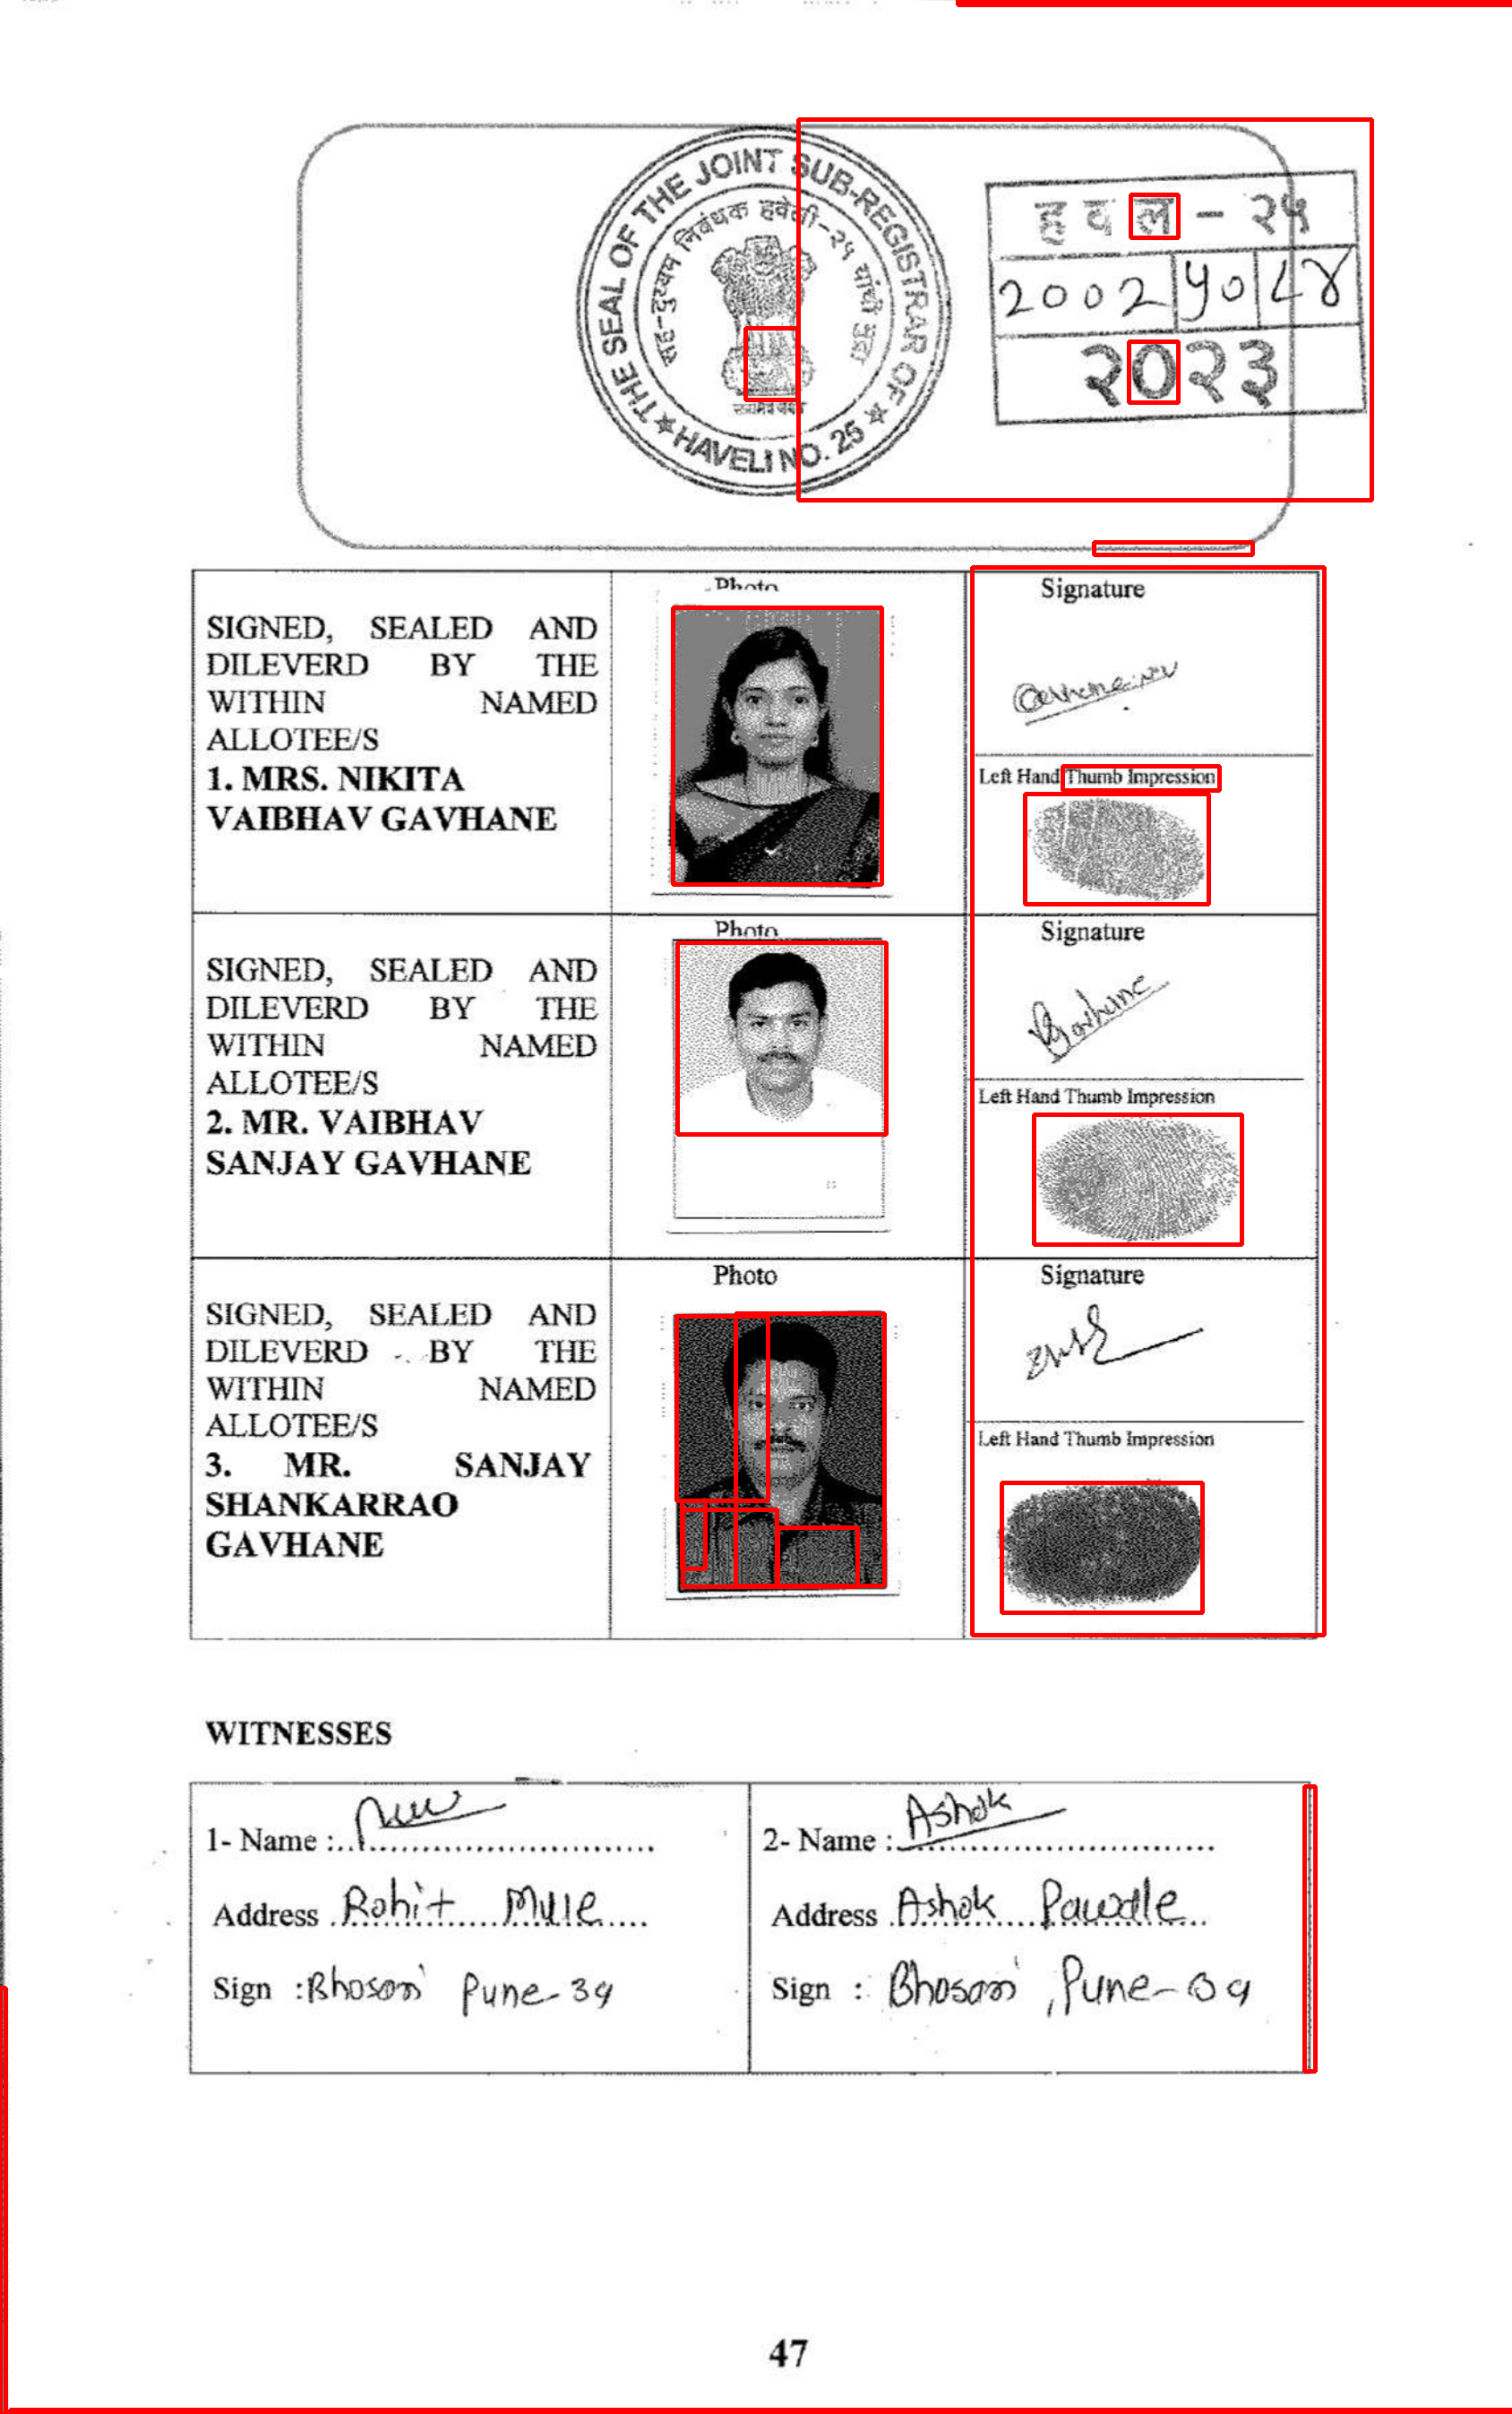 THE SEAL OF THE JOINT SUB-REGISTRAR OF
★ HAVELI NO. 25 ★
सह-दुय्यम निबंधक हवेली-२५ यांची मुद्रा
हवल - २५
2002 40 LY
२०२३
Photo
Signature
SIGNED, SEALED AND
DILEVERD BY THE
WITHIN NAMED
ALLOTEE/S
1. MRS. NIKITA
VAIBHAV GAVHANE
Left Hand Thumb Impression
Photo
Signature
SIGNED, SEALED AND
DILEVERD BY THE
WITHIN NAMED
ALLOTEE/S
2. MR. VAIBHAV
SANJAY GAVHANE
Gavhane
Left Hand Thumb Impression
Photo
Signature
SIGNED, SEALED AND
DILEVERD BY THE
WITHIN NAMED
ALLOTEE/S
3. MR. SANJAY
SHANKARRAO
GAVHANE
Left Hand Thumb Impression
WITNESSES
1- Name :
Address Rohit Mule
Sign : Bhosari Pune-39
2- Name : Ashok
Address Ashok Pawale
Sign : Bhosari, Pune-39
47